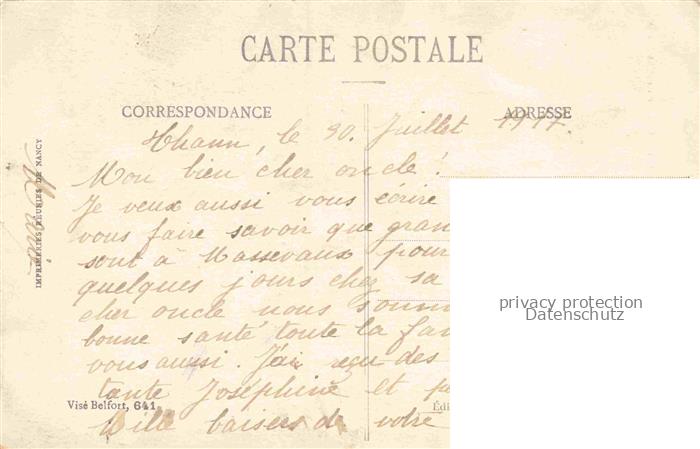 CARTE POSTALE
CORRESPONDANCE
ADRESSE
Thann, le 30. Juillet 1917.
Mon bien cher oncle!
Je veux aussi vous écrire
vous faire savoir que gran
sont à Massevaux pour
quelques jours chez sa
cher oncle nous somm
bonne santé toute la fam
vous aussi. J'ai reçu des
tante Joséphine et p
Mille baisers de votre
Visé Belfort, 641
Édi
IMPRIMERIES RÉUNIES DE NANCY
privacy protection
Datenschutz